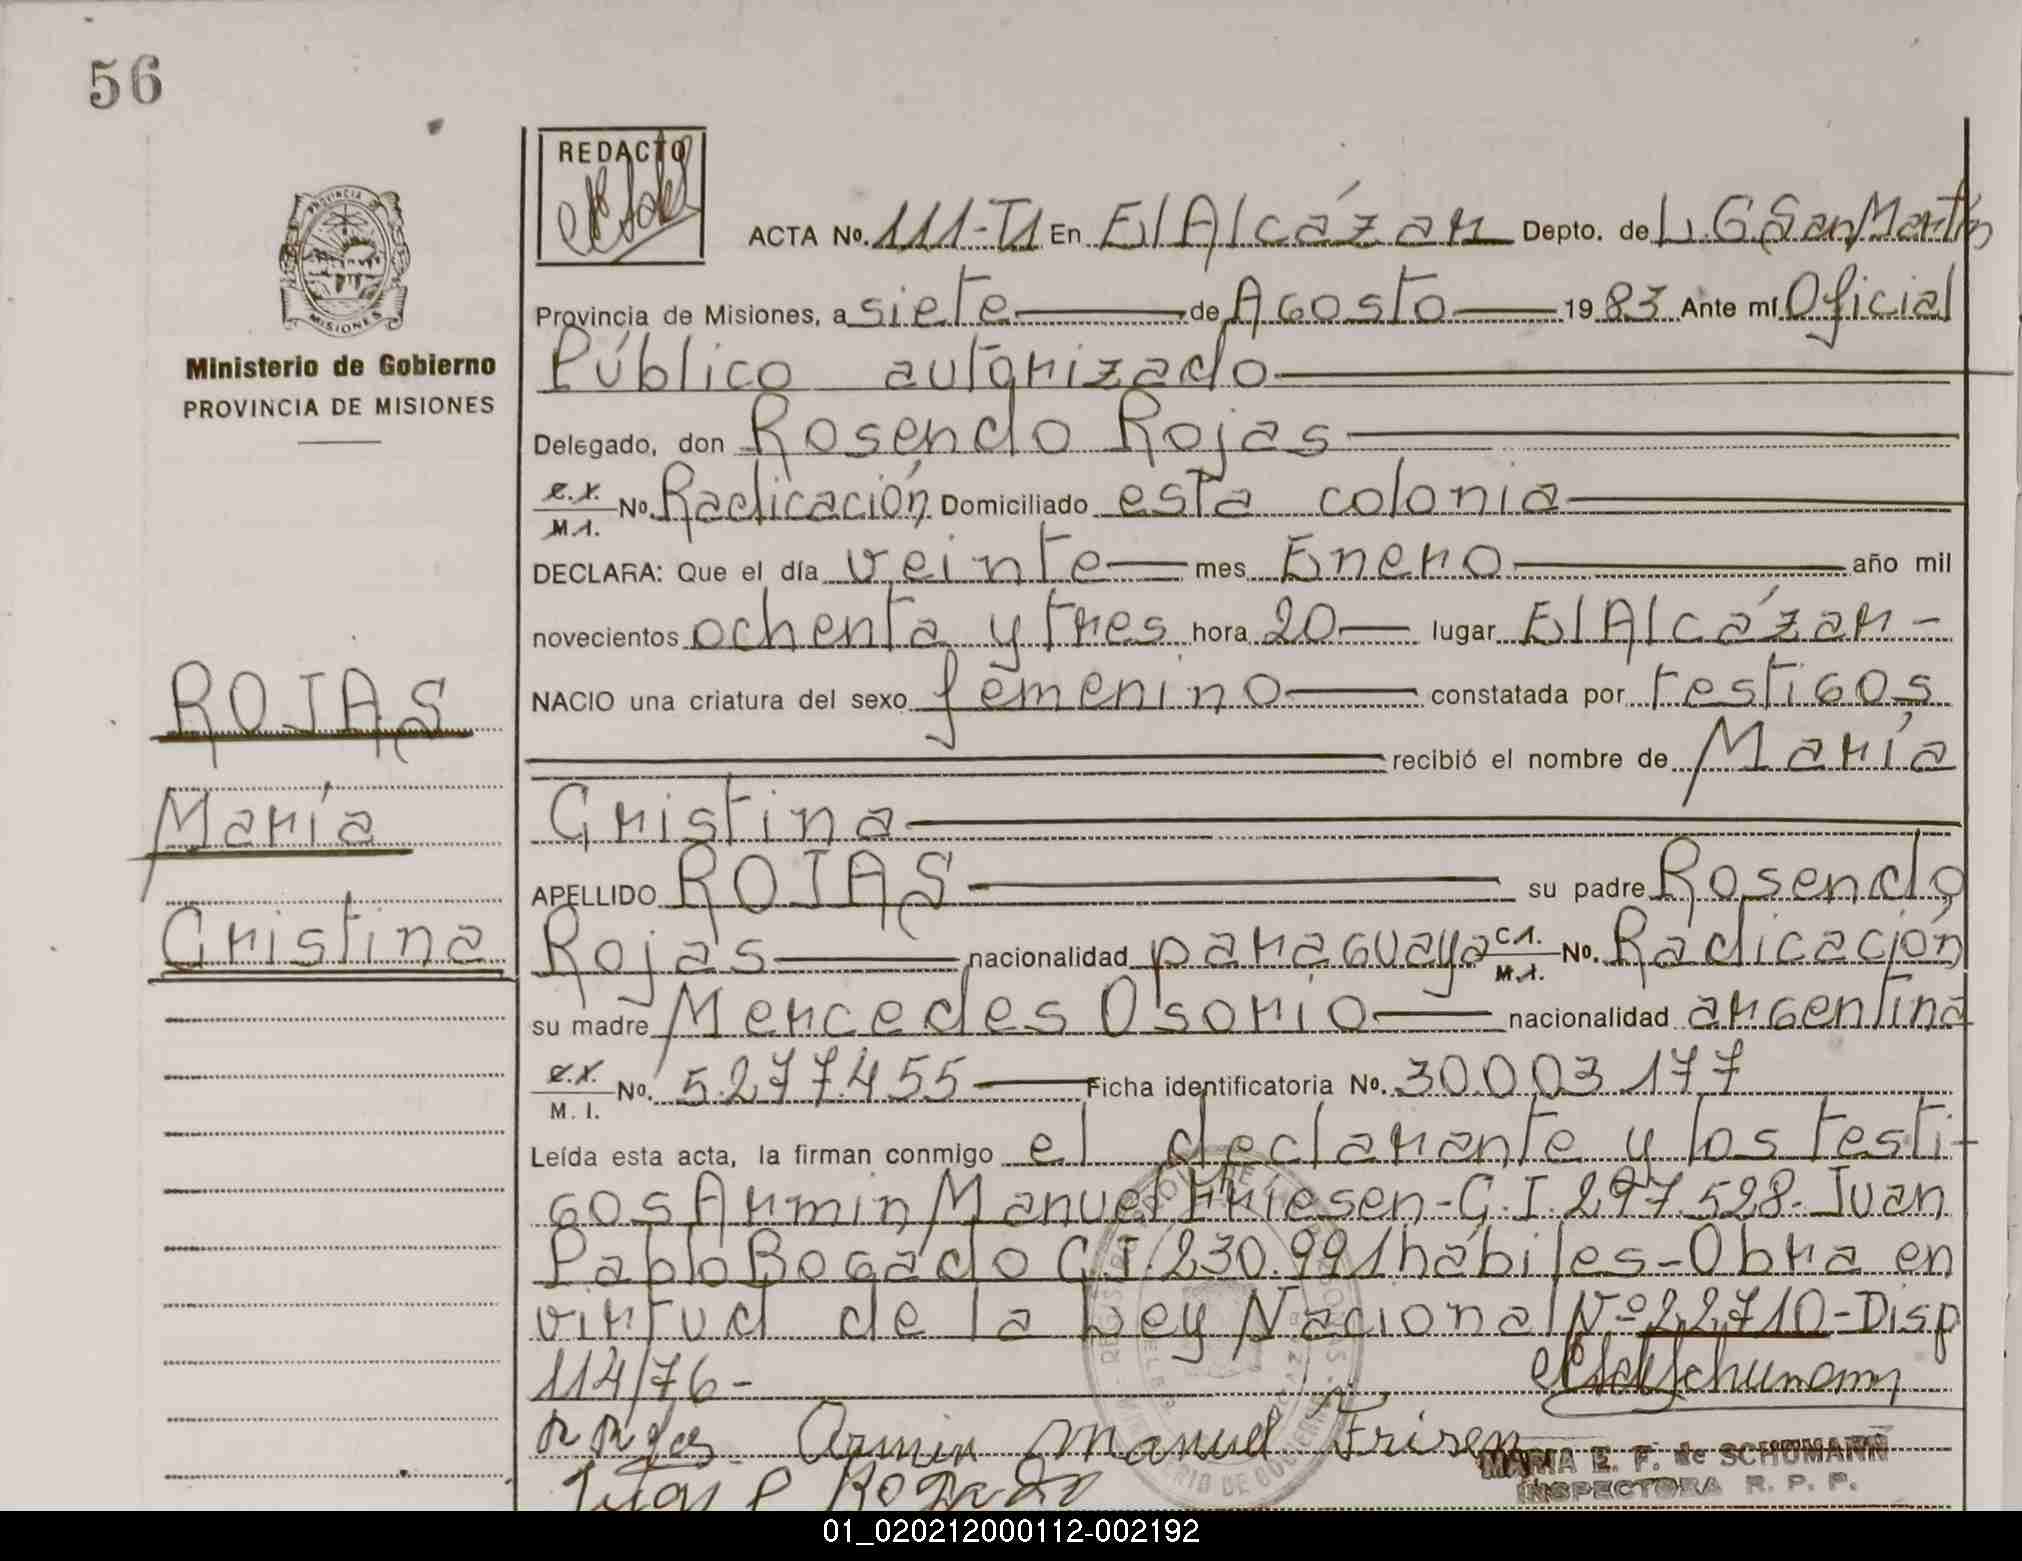 56
REDACTO
ACTA No. 111-T1 En El Alcázar Depto. de L. G San Martín
Provincia de Misiones, a siete de Agosto 1983 Ante mí Oficial
Público autorizado
Ministerio de Gobierno
PROVINCIA DE MISIONES
Delegado, don Rosendo Rojas
C.I. M.I. No. Radicación Domiciliado esta colonia
DECLARA: Que el día veinte mes Enero año mil
novecientos ochenta y tres hora 20 lugar El Alcázar -
NACIO una criatura del sexo femenino constatada por testigos
recibió el nombre de María
Cristina
APELLIDO ROJAS su padre Rosendo
Rojas nacionalidad paraguaya C.I. M.I. No. Radicación
su madre Mercedes Osorio nacionalidad argentina
C.I. M. I. No. 5.277.455 Ficha identificatoria No. 30.003.177
Leída esta acta, la firman conmigo el declarante y los testi-
gos Armin Manuel Friesen - C.I. 297.528 - Juan
Pablo Bogado C.I. 230.991 hábiles - Obra en
virtud de la Ley Nacional Nº 22.710 - Disp
114/76 -
ROJAS
María
Cristina
PROVINCIA
MISIONES
R Rojas Armin Manuel Frisen
Juan P Bogado
MARIA E. F. de SCHUMANN
INSPECTORA R. P. P.
01_020212000112-002192